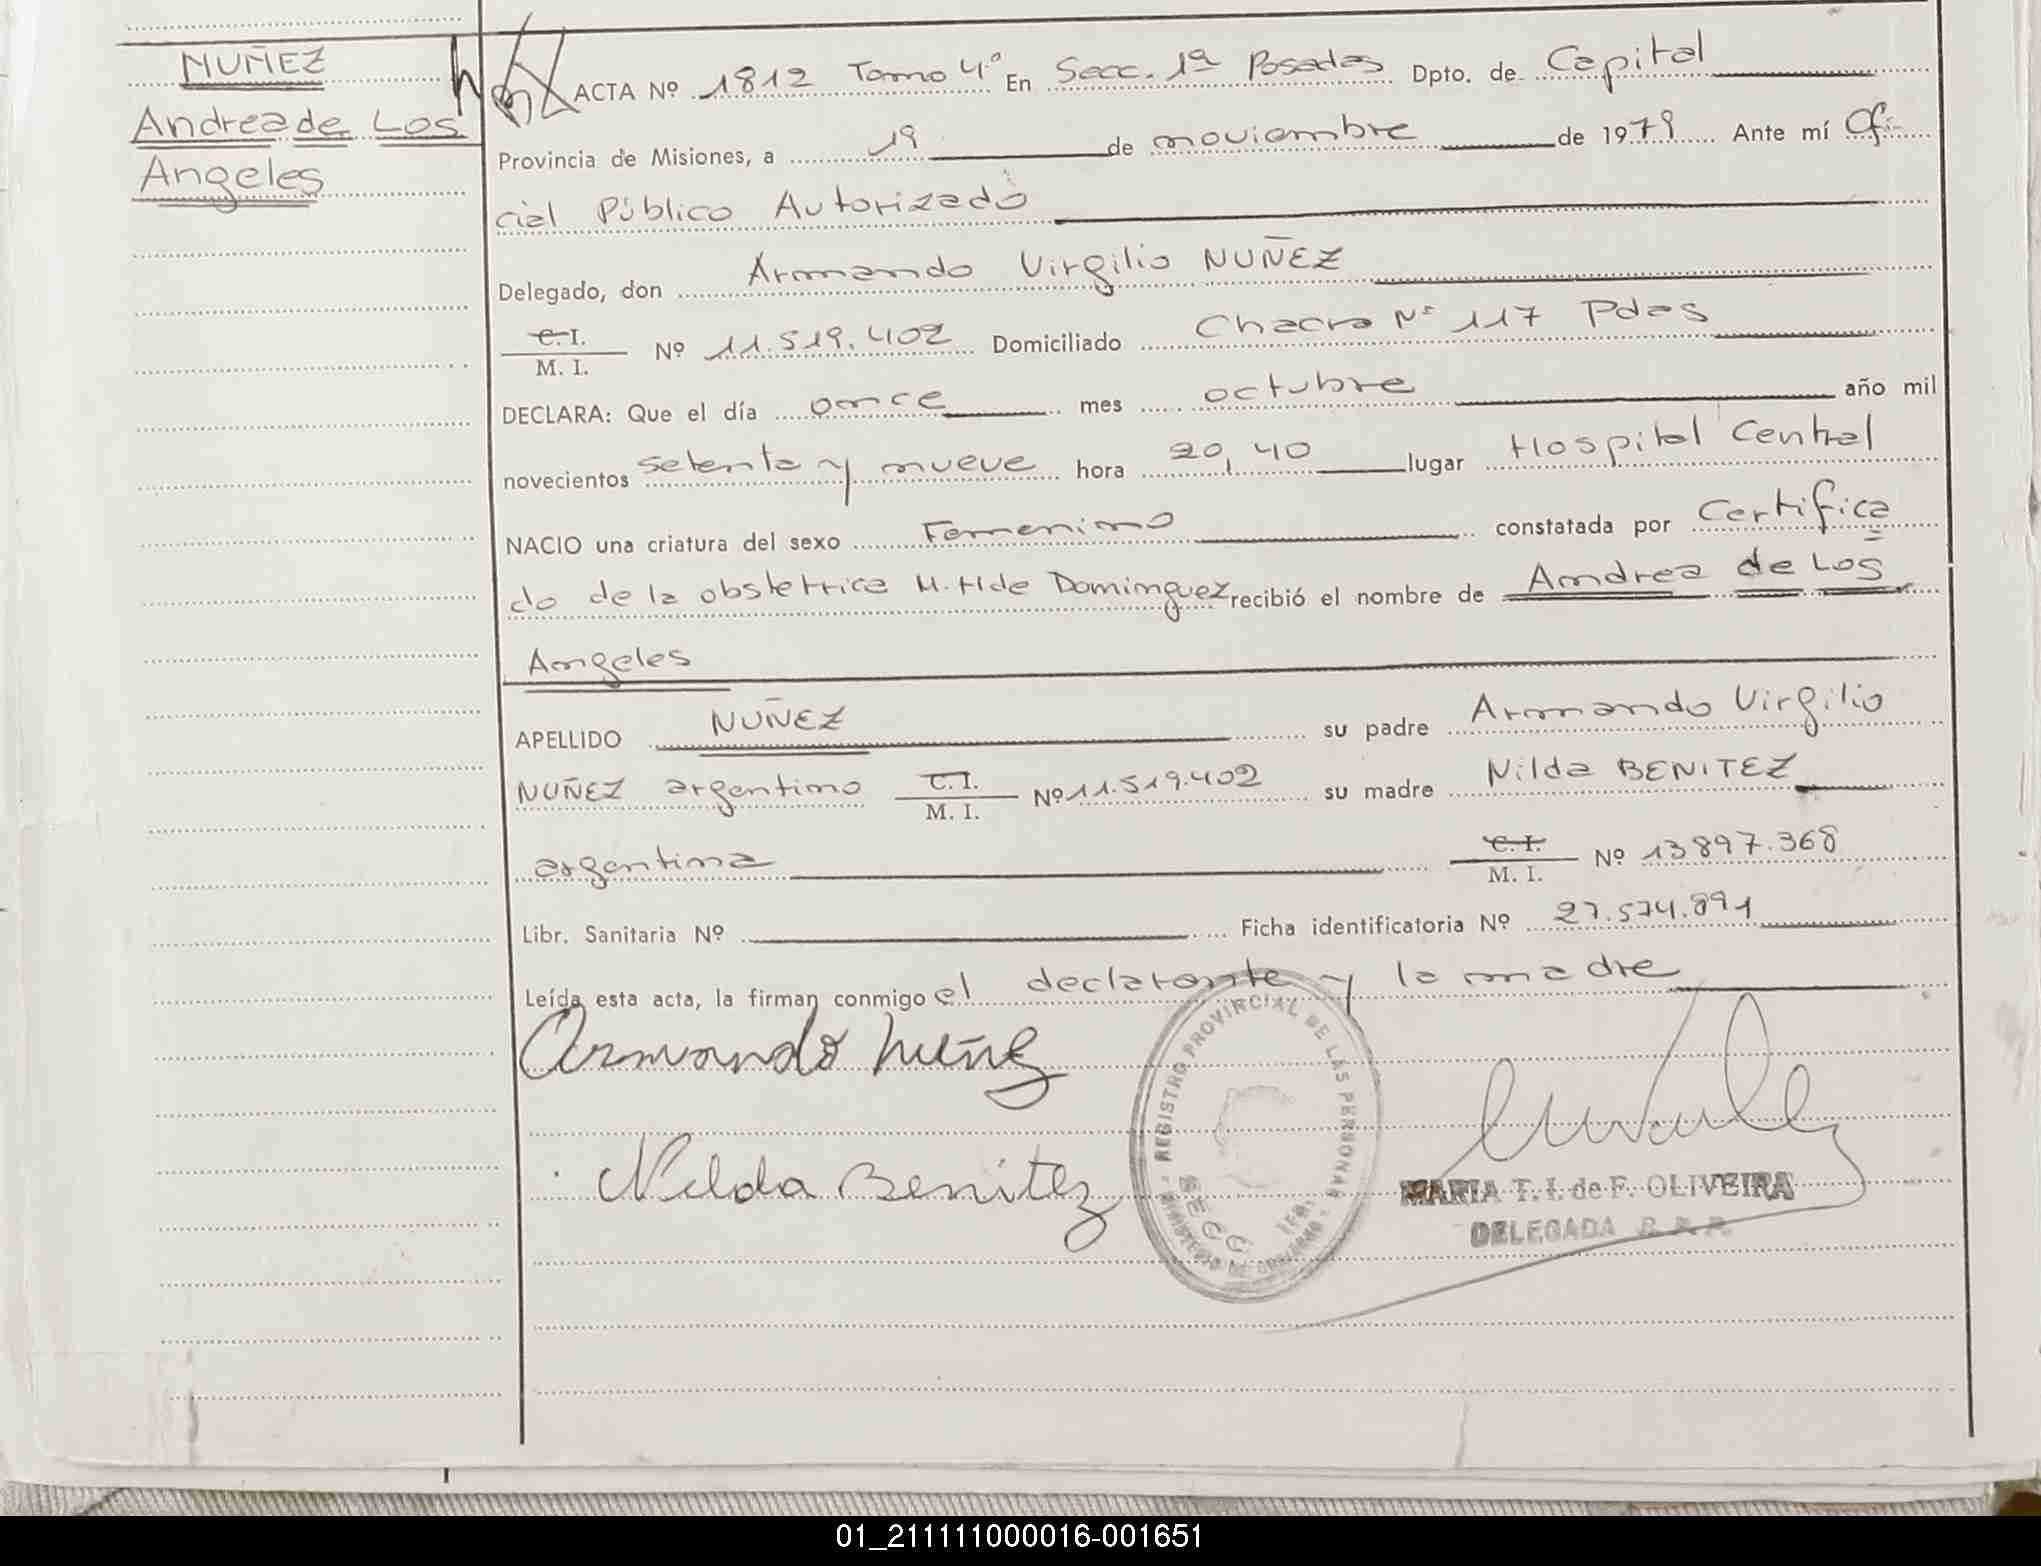 NUÑEZ
Andrea de Los
Angeles
ACTA Nº 1812 Tomo 4º En Secc. 1ª Posadas Dpto. de Capital
Provincia de Misiones, a 19 de noviembre de 1979 Ante mí Ofi-
cial Público Autorizado
Delegado, don Armando Virgilio NUÑEZ
C.I. M. I. Nº 11.519.402 Domiciliado Chacra Nº 117 Pdas
DECLARA: Que el día once mes octubre año mil
novecientos setenta y nueve hora 20,40 lugar Hospital Central
NACIO una criatura del sexo Femenino constatada por Certifica
do de la obstetrica M. H de Dominguez recibió el nombre de Andrea de Los
Angeles
APELLIDO NUÑEZ su padre Armando Virgilio
NUÑEZ argentino C.I. M. I. Nº 11.519.402 su madre Nilda BENITEZ
argentina C.I. M. I. Nº 13897.368
Libr. Sanitaria Nº Ficha identificatoria Nº 27.574.891
Leída esta acta, la firman conmigo el declarante y la madre
Armando Nuñez
Nilda Benitez
REGISTRO PROVINCIAL DE LAS PERSONAS
MINISTERIO DE GOBIERNO
SECC 1RA.
MARIA T. I. de F. OLIVEIRA
DELEGADA R. P. P.
01_211111000016-001651